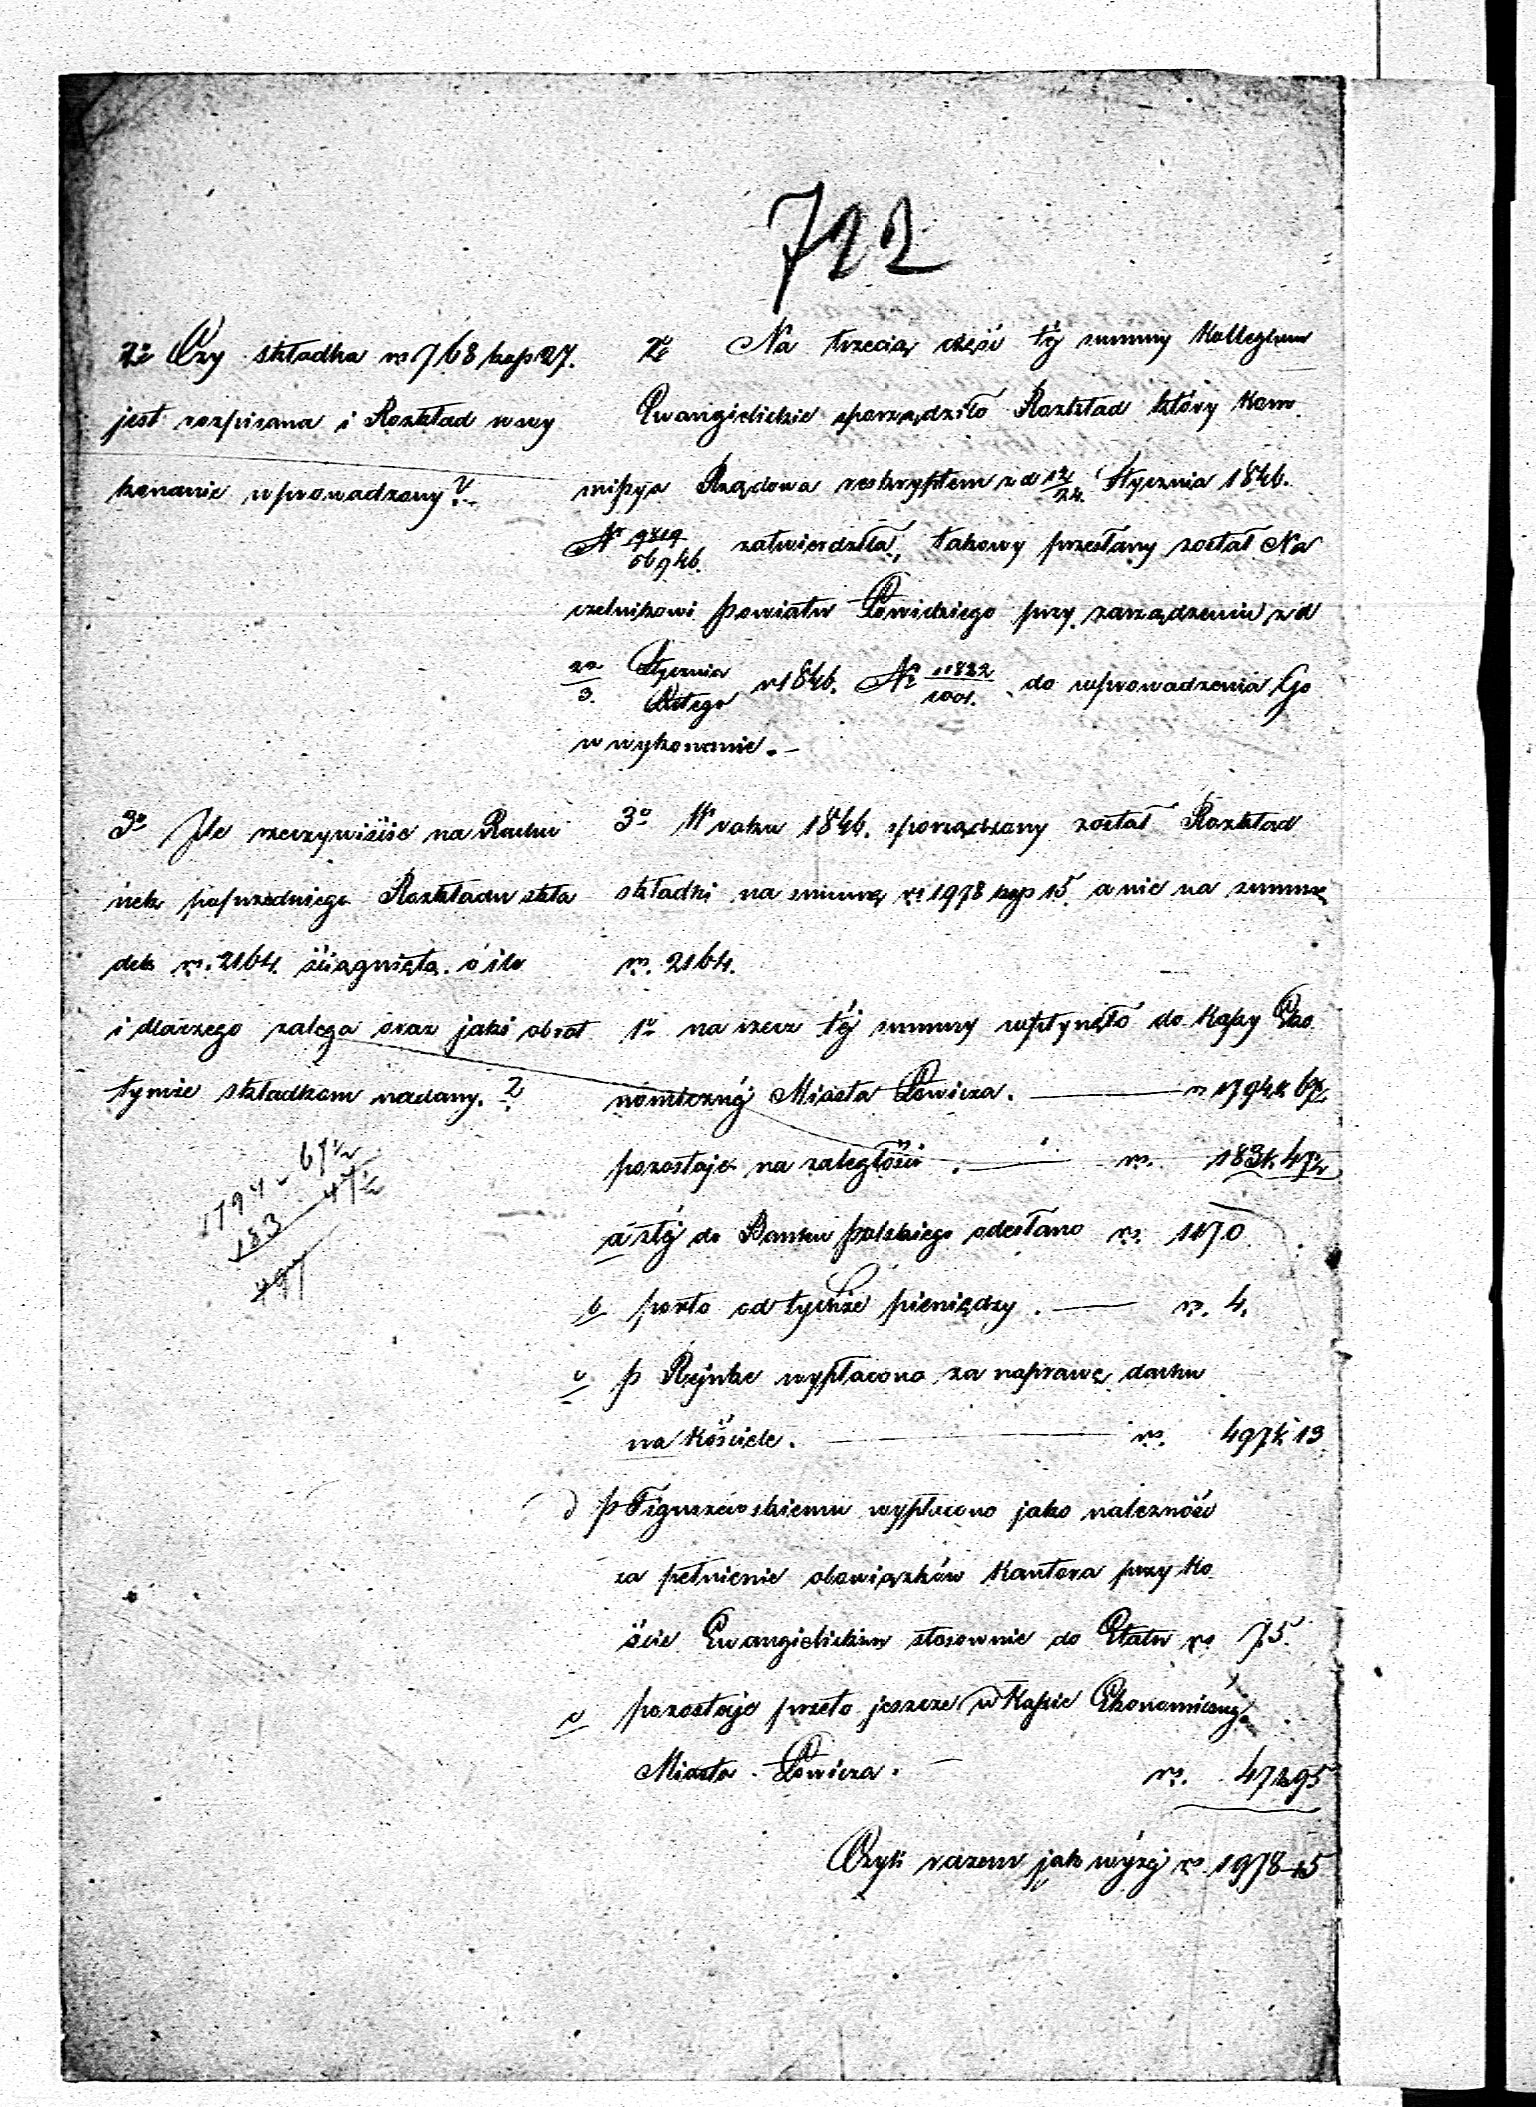 722
2o Czy składka rs 768 kop 27.
jest rozpisana i Rozkład w wy
konanie wprowadzony?
2o Na trzecią część téj summy Kollegium
Ewangielickie sporządziło Rozkład który Kom
missya Rządowa reskryptem z d 12/24. Stycznia 1846.
No 9819/56946. zatwierdziła, takowy przesłany został Na
czelnikowi powiatu Łowickiego przy zarządzeniu z d
22/3. Stycznia/Lutego r 1846. No 11832/1001. do wprowadzenia Go
w wykonanie.–
3o Ile rzeczywiście na Rachu
nek poprzedniego Rozkładu skła
dek rs. 2164. ściągnięto. o ile
i dlaczego zalega oraz jaki obrót
tymże składkom nadany. ?
3o W roku 1846. sporządzony został Rozkład
składki na summę rs 1978 kop 15. a nie na summę
rs. 2164.
1o na rzecz téj summy wpłynęło do Kassy Eko
nomicznéj Miasta Łowicza. — rs 1794 k 67½
pozostaje na zaległości . — rs. 183 k. 47½
a z téj do Banku polskiego odesłano rs. 1170
b porto od tychże pieniędzy . — rs. 4.
c p Rejnke wypłacono za naprawę dachu
na Kościele. — rs. 497 k. 13
d p Figurzewskiemu wypłacono jako należność
za pełnienie obowiązków Kantora przy Ko
ście Ewangielickim stosownie do Etatu rs 75.
e pozostaje przeto jeszcze w Kassie Ekonomicznéj
Miasta Łowicza. — rs. 47 k 95
Czyli razem jak wyżéj rs. 1978–15
1794 – 67½
183 – 47½